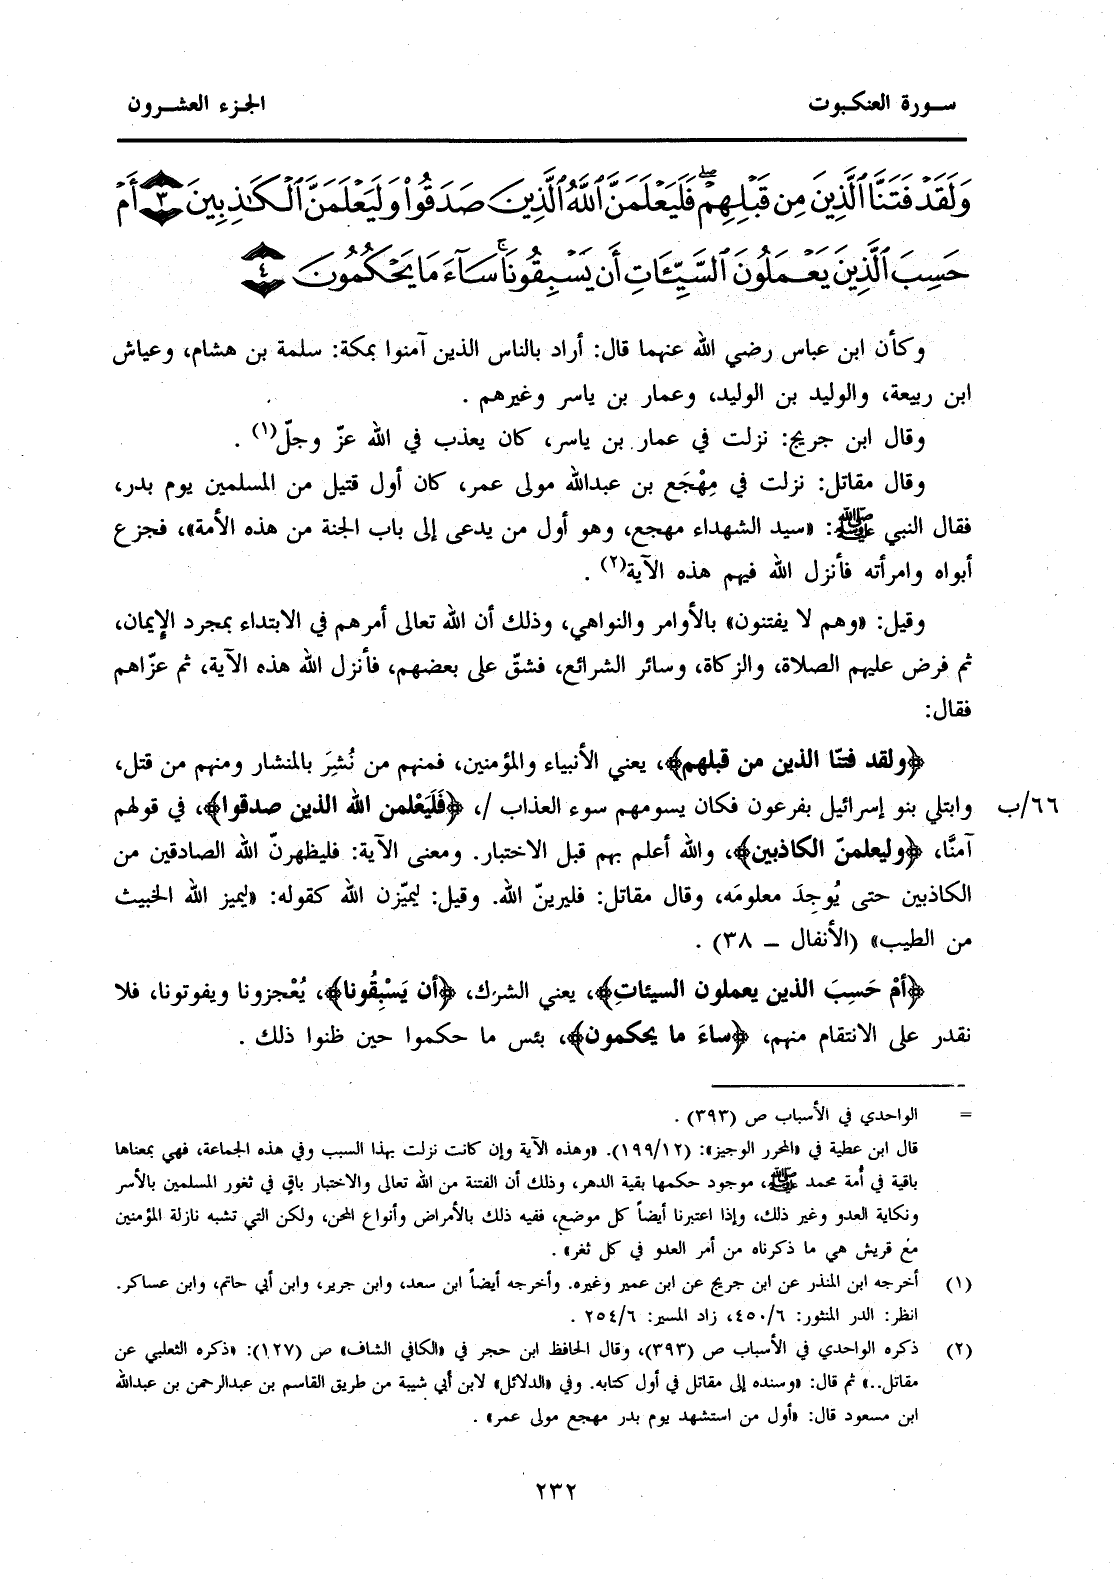 سورة العنكبوت
الجزء العشرون
وَلَقَدْ فَتَنَّا ٱلَّذِينَ مِن قَبْلِهِمْ ۖ فَلَيَعْلَمَنَّ ٱللَّهُ ٱلَّذِينَ صَدَقُوا۟ وَلَيَعْلَمَنَّ ٱلْكَٰذِبِينَ ٣ أَمْ
حَسِبَ ٱلَّذِينَ يَعْمَلُونَ ٱلسَّيِّـَٔاتِ أَن يَسْبِقُونَا ۚ سَآءَ مَا يَحْكُمُونَ ٤
وكأن ابن عباس رضي الله عنهما قال: أراد بالناس الذين آمنوا بمكة: سلمة بن هشام، وعياش
ابن ربيعة، والوليد بن الوليد، وعمار بن ياسر وغيرهم .
وقال ابن جريج: نزلت في عمار بن ياسر، كان يعذب في الله عزّ وجلّ(١) .
وقال مقاتل: نزلت في مِهْجَع بن عبدالله مولى عمر، كان أول قتيل من المسلمين يوم بدر،
فقال النبي ﷺ: «سيد الشهداء مهجع، وهو أول من يدعى إلى باب الجنة من هذه الأمة»، فجزع
أبواه وامرأته فأنزل الله فيهم هذه الآية(٢) .
وقيل: «وهم لا يفتنون» بالأوامر والنواهي، وذلك أن الله تعالى أمرهم في الابتداء بمجرد الإيمان،
ثم فرض عليهم الصلاة، والزكاة، وسائر الشرائع، فشقّ على بعضهم، فأنزل الله هذه الآية، ثم عزّاهم
فقال:
﴿ولقد فتنّا الذين من قبلهم﴾، يعني الأنبياء والمؤمنين، فمنهم من نُشِرَ بالمنشار ومنهم من قتل،
٦٦/ب وابتلي بنو إسرائيل بفرعون فكان يسومهم سوء العذاب /، ﴿فَلَيَعْلمن الله الذين صدقوا﴾، في قولهم
آمنَّا، ﴿وليعلمنّ الكاذبين﴾، والله أعلم بهم قبل الاختبار. ومعنى الآية: فليظهرنّ الله الصادقين من
الكاذبين حتى يُوجِدَ معلومَه، وقال مقاتل: فليرينّ الله. وقيل: ليميّزن الله كقوله: «ليميز الله الخبيث
من الطيب» (الأنفال – ٣٨) .
﴿أمْ حَسِبَ الذين يعملون السيئاتِ﴾، يعني الشرك، ﴿أن يَسْبِقُونا﴾، يُعْجزونا ويفوتونا، فلا
نقدر على الانتقام منهم، ﴿ساءَ ما يحكمون﴾، بئس ما حكموا حين ظنوا ذلك .
= الواحدي في الأسباب ص (٣٩٣) .
قال ابن عطية في «المحرر الوجيز»: (١٩٩/١٢). «وهذه الآية وإن كانت نزلت بهذا السبب وفي هذه الجماعة، فهي بمعناها
باقية في أُمة محمد ﷺ، موجود حكمها بقية الدهر، وذلك أن الفتنة من الله تعالى والاختبار باقٍ في ثغور المسلمين بالأسر
ونكاية العدو وغير ذلك، وإذا اعتبرنا أيضاً كل موضع، ففيه ذلك بالأمراض وأنواع المحن، ولكن التي تشبه نازلة المؤمنين
مع قريش هي ما ذكرناه من أمر العدو في كل ثغر» .
(١) أخرجه ابن المنذر عن ابن جريج عن ابن عمير وغيره. وأخرجه أيضاً ابن سعد، وابن جرير، وابن أبي حاتم، وابن عساكر.
انظر: الدر المنثور: ٤٥٠/٦، زاد المسير: ٢٥٤/٦ .
(٢) ذكره الواحدي في الأسباب ص (٣٩٣)، وقال الحافظ ابن حجر في «الكافي الشاف» ص (١٢٧): «ذكره الثعلبي عن
مقاتل..» ثم قال: «وسنده إلى مقاتل في أول كتابه. وفي «الدلائل» لابن أبي شيبة من طريق القاسم بن عبدالرحمن بن عبدالله
ابن مسعود قال: «أول من استشهد يوم بدر مهجع مولى عمر» .
٢٣٢